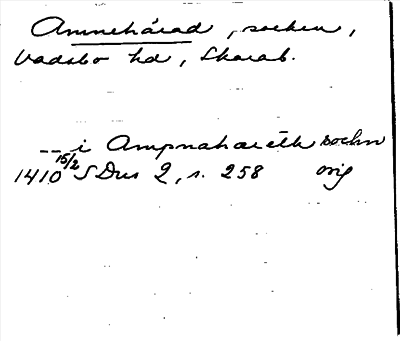 Amnehärad, socken,
Vadsbo hd, Skarab.
-- i Ampnahæræth sochn
1410 15/2 SDns 2, s. 258 orig